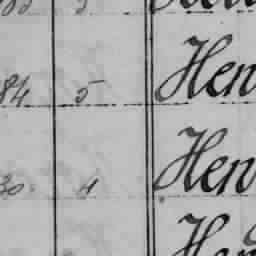 84 5 Hen
30 4 Hen
Hen